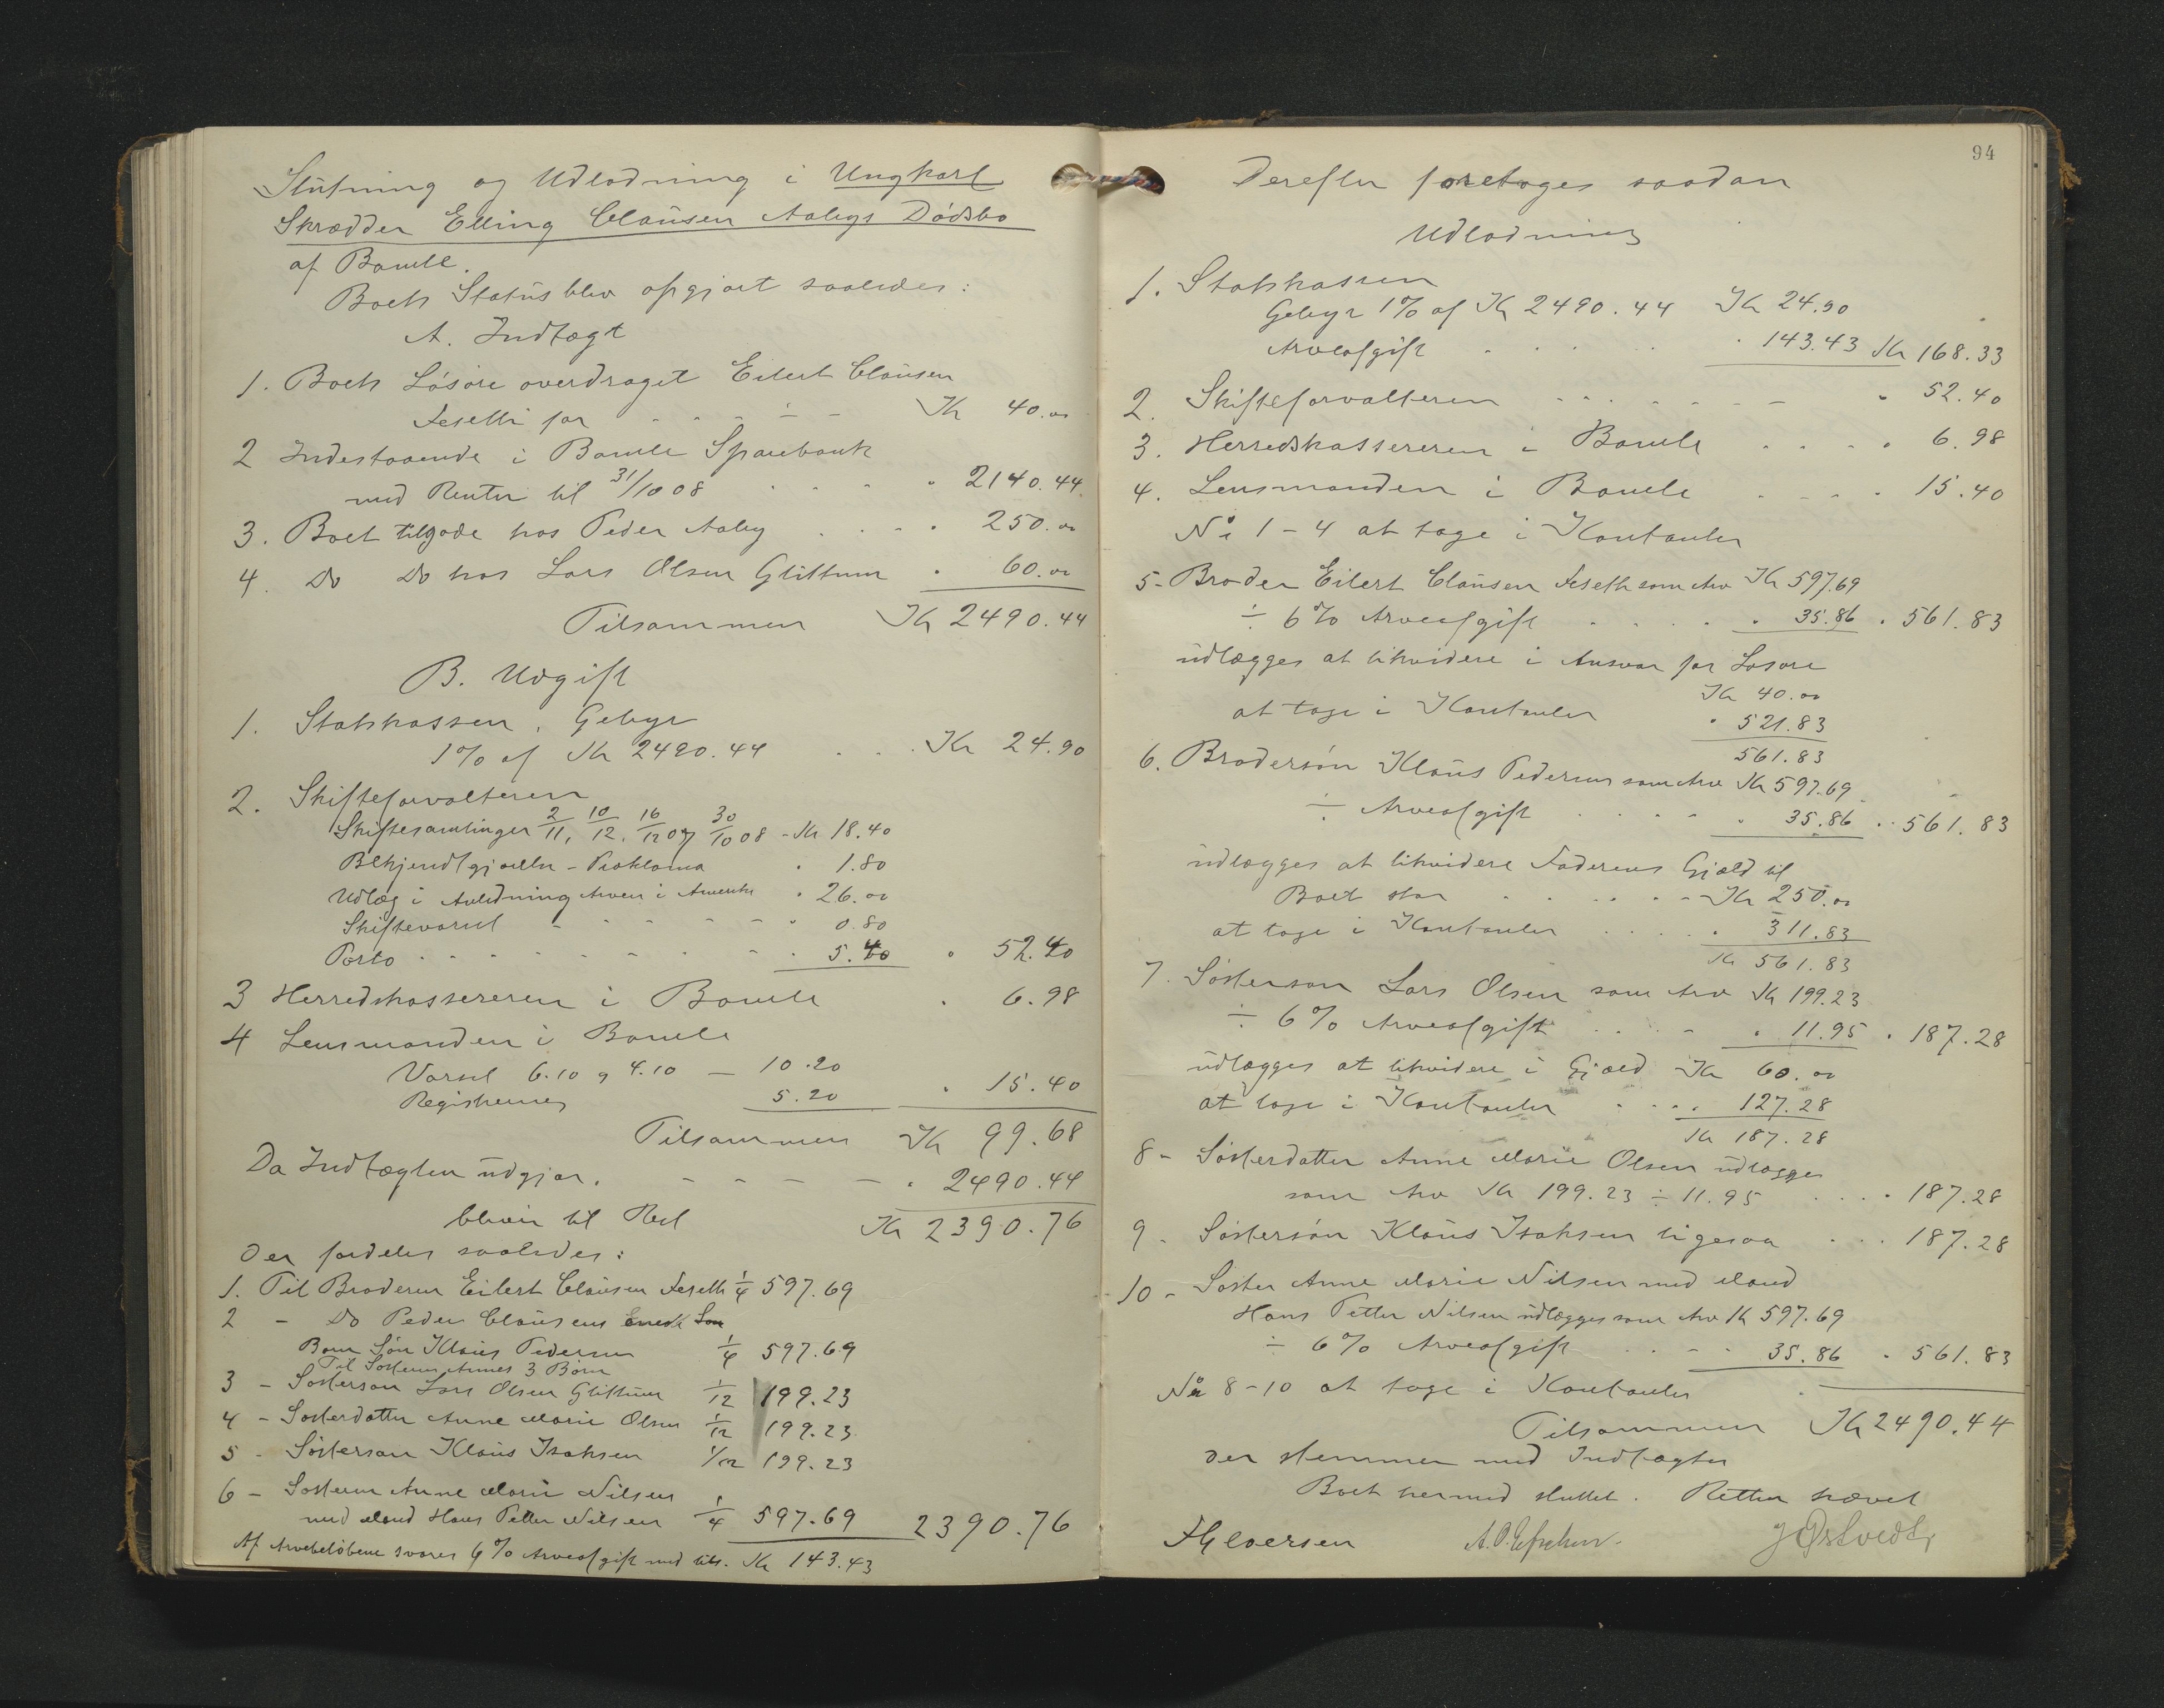 Slutning og Udlodning i Ungkarl
Skrædder Elling Clausen Aabys Dødsbo
af Bamle.
Boets Status blev opgjort saaledes:
A. Indtægt
1. Boets Løsøre overdraget Eilert Clausen
Feseth for - - - - - Kr 40.00
2 Indestaaende i Bamle Sparebank
med Renter til 31/10 08 . . . . 2140.44
3. Boet tilgode hos Peder Aaby . . . . 250.00
4. Do Do hos Lars Olsen Glittum . 60.00
Tilsammen Kr 2490.44
B. Udgift
1. Statskassen. Gebyr
1% af Kr 2490.44 . . . Kr 24.90
2. Skifteforvalteren
Skiftesamlinger 2/11, 10/12, 16/12 07 30/10 08 - Kr 18.40
Bekjendtgjørelse - Proklama . 1.80
Udlæg i Anledning Arven i Amerika . 26.00
Skiftevarsel - - - - - . 0.80
Porto . . . . . . . . 5.40 . 52.40
3 Herredskassereren i Bamle . 6.98
4 Lensmanden i Bamle
Varsel 6.10 og 4.10 — 10.20
Registrering 5.20 . 15.40
Tilsammen Kr 99.68
Da Indtægten udgjør. - - - - . 2490.44
bliver til Rest Kr 2390.76
der fordeles saaledes:
1. Til Broderen Eilert Clausen Feseth 1/4 597.69
2 - Do Peder Clausens
Barn Søn Klaus Pedersen 1/4 597.69
Til Søsteren Annes 3 Børn
3 - Søstersøn Lars Olsen Glittum 1/12 199.23
4 - Søsterdatter Anne Marie Olsen 1/12 199.23
5 - Søstersøn Klaus Isaksen 1/12 199.23
6 - Søsteren Anne Marie Nilsen
med Mand Hans Petter Nilsen 1/4 597.69 2390.76
Af Arvebeløbene svares 6% Arveafgift med tils. Kr 143.43
94
Derefter foretoges saadan
Udlodning
1. Statskassen
Gebyr 1% af Kr 2490.44 Kr 24.90
Arveafgift . . . . . 143.43 Kr 168.33
2. Skifteforvalteren - - - - - - - . 52.40
3. Herredskassereren i Bamle . . . . 6.98
4. Lensmanden i Bamle . . . . 15.40
No 1-4 at tage i Kontanter
5- Broder Eilert Clausen Feseth som Arv Kr 597.69
÷ 6% Arveafgift . . . . . 35.86 . 561.83
udlægges at likvidere i Ansvar for Løsøre
Kr 40.00
at tage i Kontanter . 521.83
561.83
6. Brodersøn Klaus Pedersen som Arv Kr 597.69
÷ Arveafgift . . . . . 35.86 . 561.83
udlægges at likvidere Faderens Gjæld til
Boet stor . . . . . - Kr 250.00
at tage i Kontanter . . . . . 311.83
Kr 561.83
7. Søstersøn Lars Olsen som Arv Kr 199.23
÷ 6% Arveafgift . . . . 11.95 . 187.28
udlægges at likvidere i Gjæld Kr 60.00
at tage i Kontanter . . . . 127.28
Kr 187.28
8 - Søsterdatter Anne Marie Olsen udlægges
som Arv Kr 199.23 ÷ 11.95 . . . . 187.28
9 - Søstersøn Klaus Isaksen ligesaa . . . 187.28
10 - Søster Anne Marie Nilsen med Mand
Hans Petter Nilsen udlægges som Arv Kr 597.69
÷ 6% Arveafgift . . . . 35.86 . 561.83
No 8-10 at tage i Kontanter
Tilsammen Kr 2490.44
der stemmer med Indtægten
Boet hermed sluttet. Retten hævet
A.O.
J Østvedt